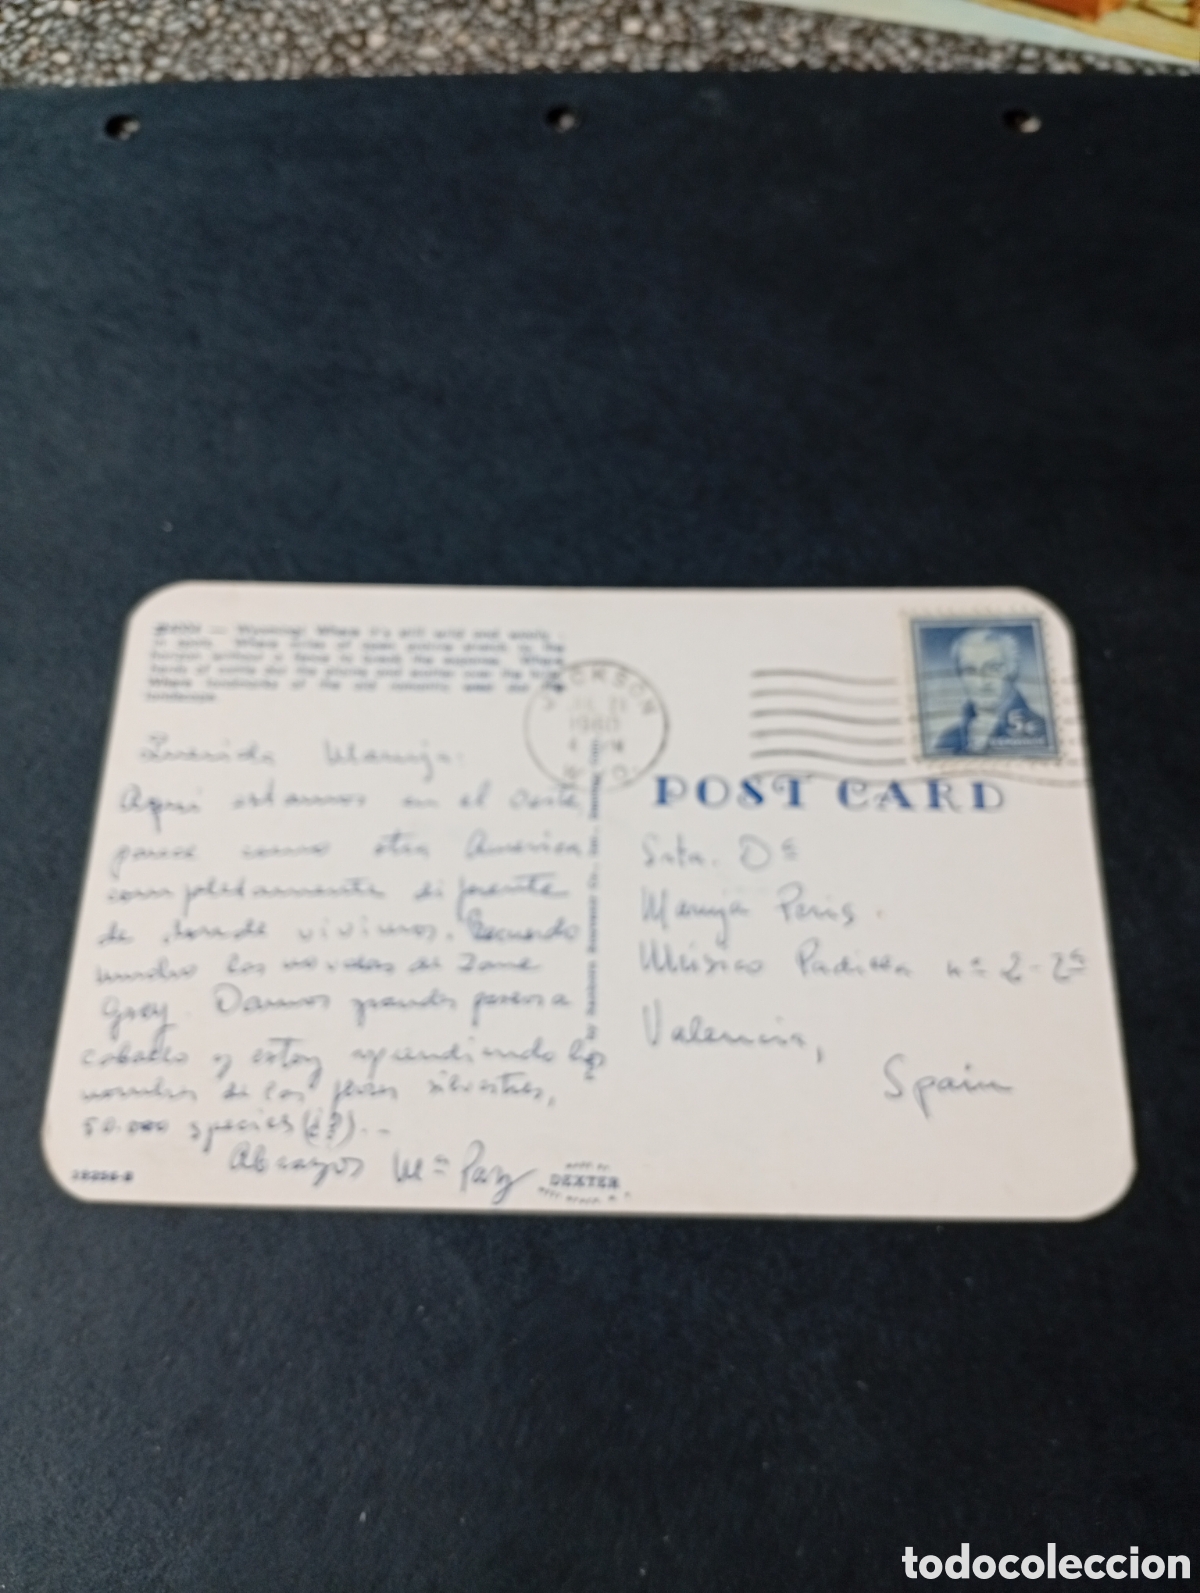 Wyoming! Where it's still wild and wooly
in spots. Where miles of open prairie stretch to the
horizon without a fence to break the expanse. Where
herds of cattle dot the plains and scatter over the hills.
Where landmarks of the old romantic west dot the
landscape.
JACKSON
1960
5c
POST CARD
Querida Maruja:
Aquí estamos en el Oeste,
parece como otra America
completamente diferente
de donde vivimos. Recuerdo
mucho las novelas de Zane
Grey. Damos grandes paseos a
caballo y estoy aprendiendo los
nombres de las flores silvestres,
50.000 species (¿?)...
Abrazos Mª Paz
Srta. Dª
Maruja Peris.
Músico Padilla nº 2-2ª
Valencia,
Spain
DEXTER
todocoleccion